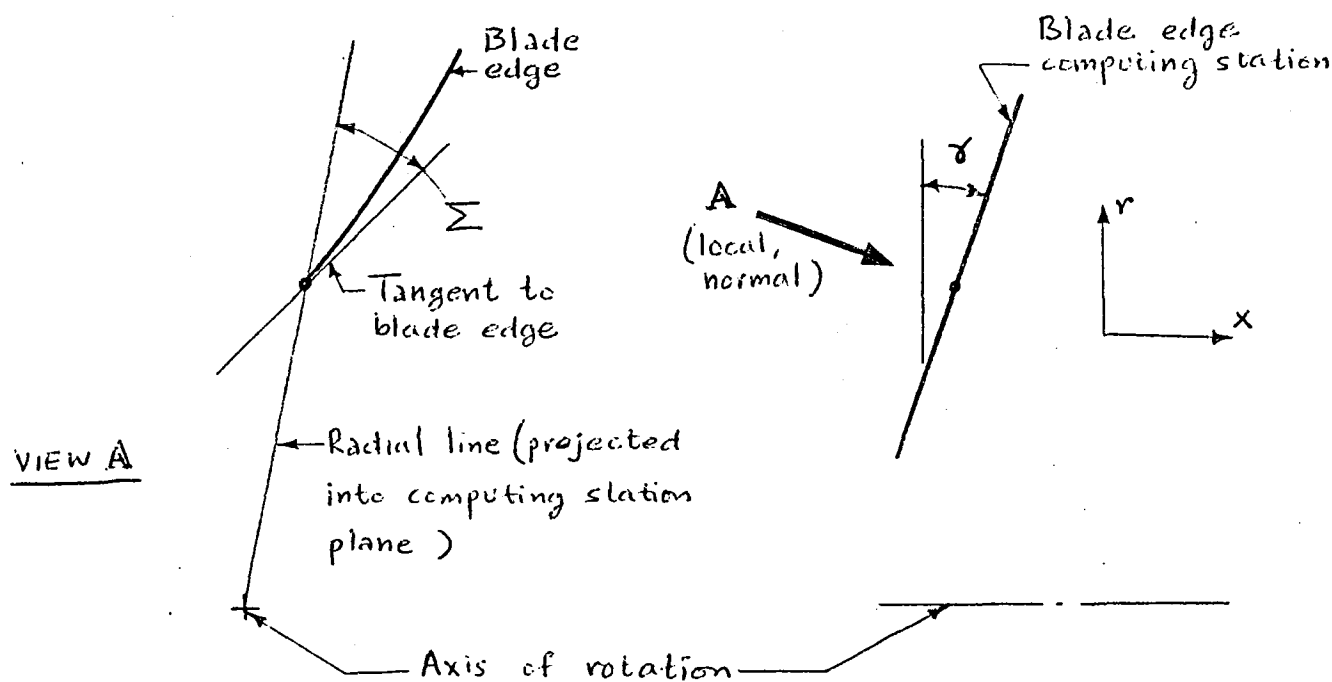 Blade
edge
Σ
Tangent to
blade edge
Radial line (projected
into computing station
plane)
VIEW A
Axis of rotation
Blade edge
computing station
γ
A
(local,
normal)
r
x